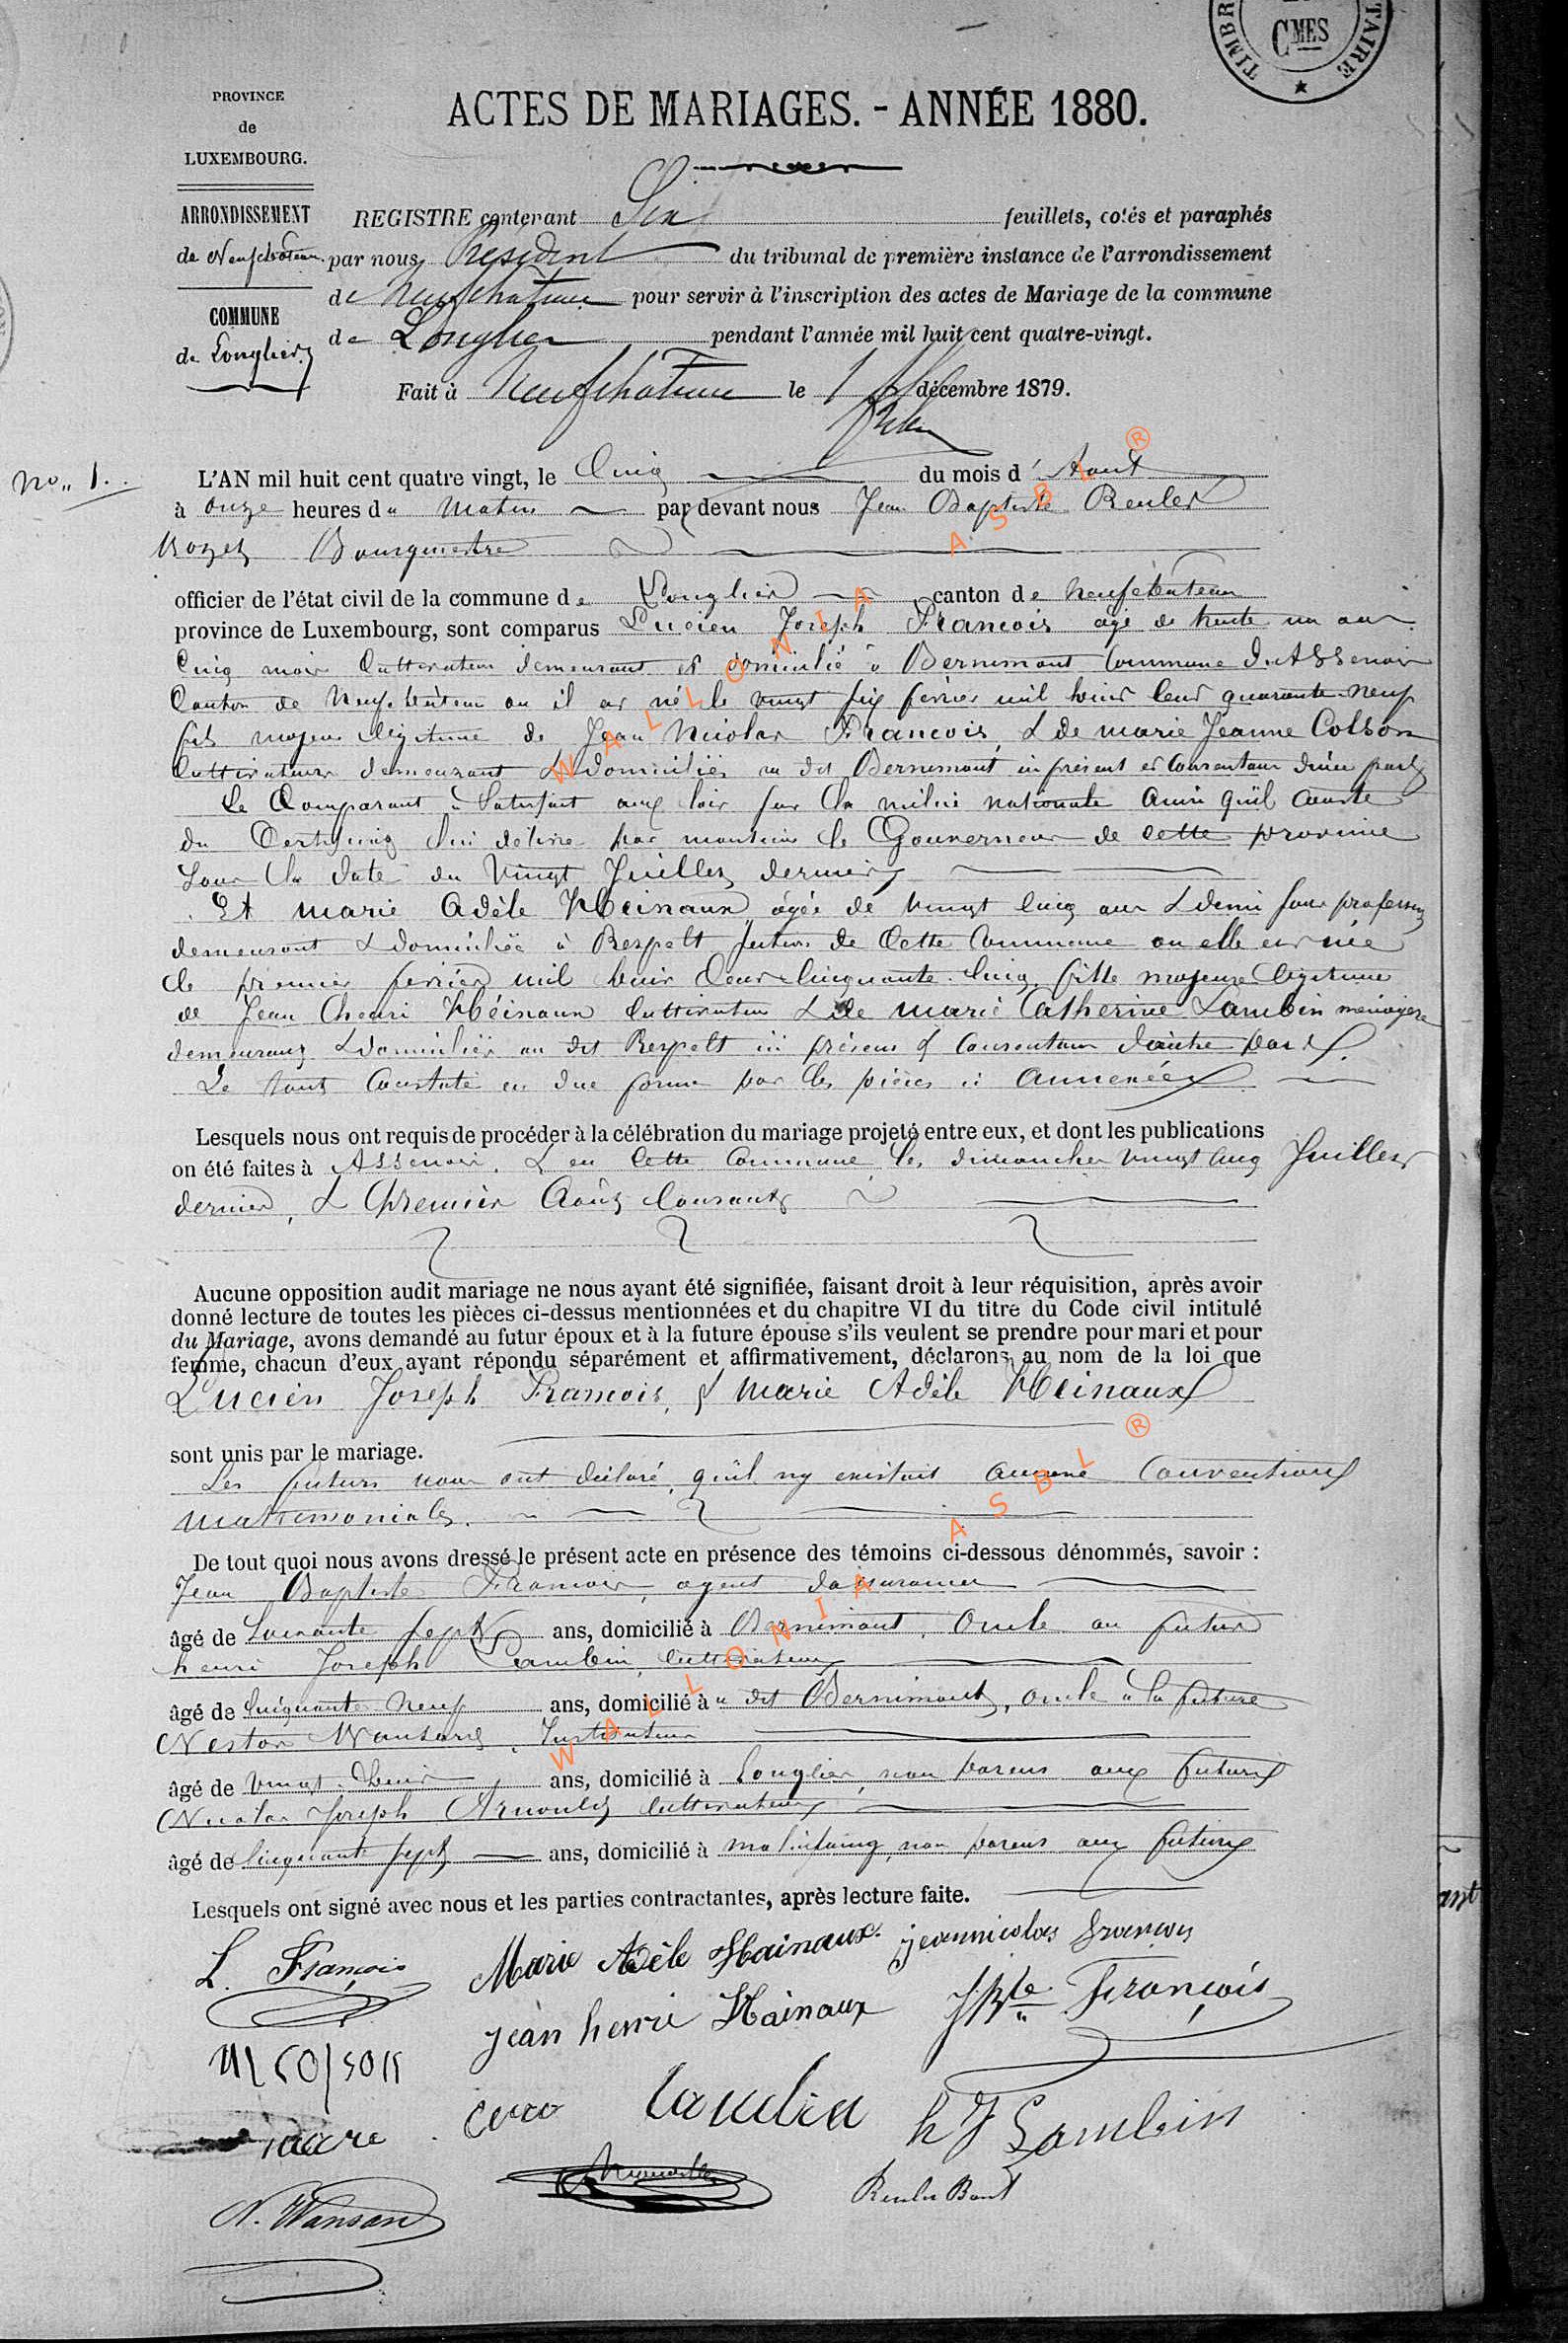 TIMBR
CMES
TAIRE
PROVINCE
de
LUXEMBOURG.
ACTES DE MARIAGES. - ANNÉE 1880.
ARRONDISSEMENT
de Neufchateau
COMMUNE
de Longlier
REGISTRE contenant Six feuillets, cotés et paraphés
par nous, Président du tribunal de première instance de l'arrondissement
de Neufchateau pour servir à l'inscription des actes de Mariage de la commune
de Longlier pendant l'année mil huit cent quatre-vingt.
Fait à Neufchateau le décembre 1879.
No. 1.
L'AN mil huit cent quatre vingt, le Cinq du mois d' Aout
à onze heures du Matin par devant nous Jean Baptiste Reuler
Bourgmestre
officier de l'état civil de la commune de Longlier canton de Neufchateau
province de Luxembourg, sont comparus Lucien Joseph Francois agé de trente un ans
Cinq mois Cultivateur demeurant et domicilié à Bernimont Commune d'Assenois
Canton de Neufchâteau ou il est né le vingt six fevrier mil huit Cent quarante-neuf
fils majeur légitime de Jean Nicolas Francois, & de marie Jeanne Colson
Cultivateurs demeurant & domiciliés au dit Bernimont ici présent et Consentant d'une part
Le Comparant à Satisfait aux lois sur la milice nationale Ainsi qu'il Conste
du Certificat lui délivré par monsieur le Gouverneur de cette province
Sous la date du Vingt Juillet dernier
Et marie Adèle Heinaux agée de vingt Cinq ans & demi sans profession
demeurant & domiciliée à Respelt section de Cette Commune ou elle est née
le premier fevrier mil huit Cent Cinquante-Cinq, fille majeure légitime
de Jean henri Héinaux Cultivateur & de marie Catherine Lambin ménagère
demeurant & domiciliés au dit Respelt ici présens & Consentans d'autre part.
Le tout Constaté en due forme par les pièces ci annexées
Lesquels nous ont requis de procéder à la célébration du mariage projeté entre eux, et dont les publications
on été faites à Assenois, & en Cette Commune les dimanches vingt Cinq Juillet
dernier, & premier Août Courant
Aucune opposition audit mariage ne nous ayant été signifiée, faisant droit à leur réquisition, après avoir
donné lecture de toutes les pièces ci-dessus mentionnées et du chapitre VI du titre du Code civil intitulé
du Mariage, avons demandé au futur époux et à la future épouse s'ils veulent se prendre pour mari et pour
femme, chacun d'eux ayant répondu séparément et affirmativement, déclarons au nom de la loi que
Lucien Joseph Francois, & Marie Adèle Heinaux
sont unis par le mariage.
Les futurs nous ont déclaré qu'il ny existait aucune Conventions
Matrimoniales.
De tout quoi nous avons dressé le présent acte en présence des témoins ci-dessous dénommés, savoir :
Jean Baptiste Francois, agent d'assurances
âgé de Soixante sept ans, domicilié à Bernimont, Oncle au futur
henri Joseph Lambin, Cultivateur
âgé de Cinquante Neuf ans, domicilié à u dit Bernimont, oncle à la future
Nestor Wansard, Instituteur
âgé de Vingt-huit ans, domicilié à Longlier, non parens aux futurs
Nicolas Joseph Arnould Cultivateur
âgé de Cinquante sept ans, domicilié à molinfaing, non parens aux futurs
Lesquels ont signé avec nous et les parties contractantes, après lecture faite.
L. François Marie Adèle Hainaux. jeannicolas francois
jean henri Hainaux JBte François
M Colson
Lambin h J Lambin
N. Wansard Reuler
WALLONIA ASBL ®
WALLONIA ASBL ®